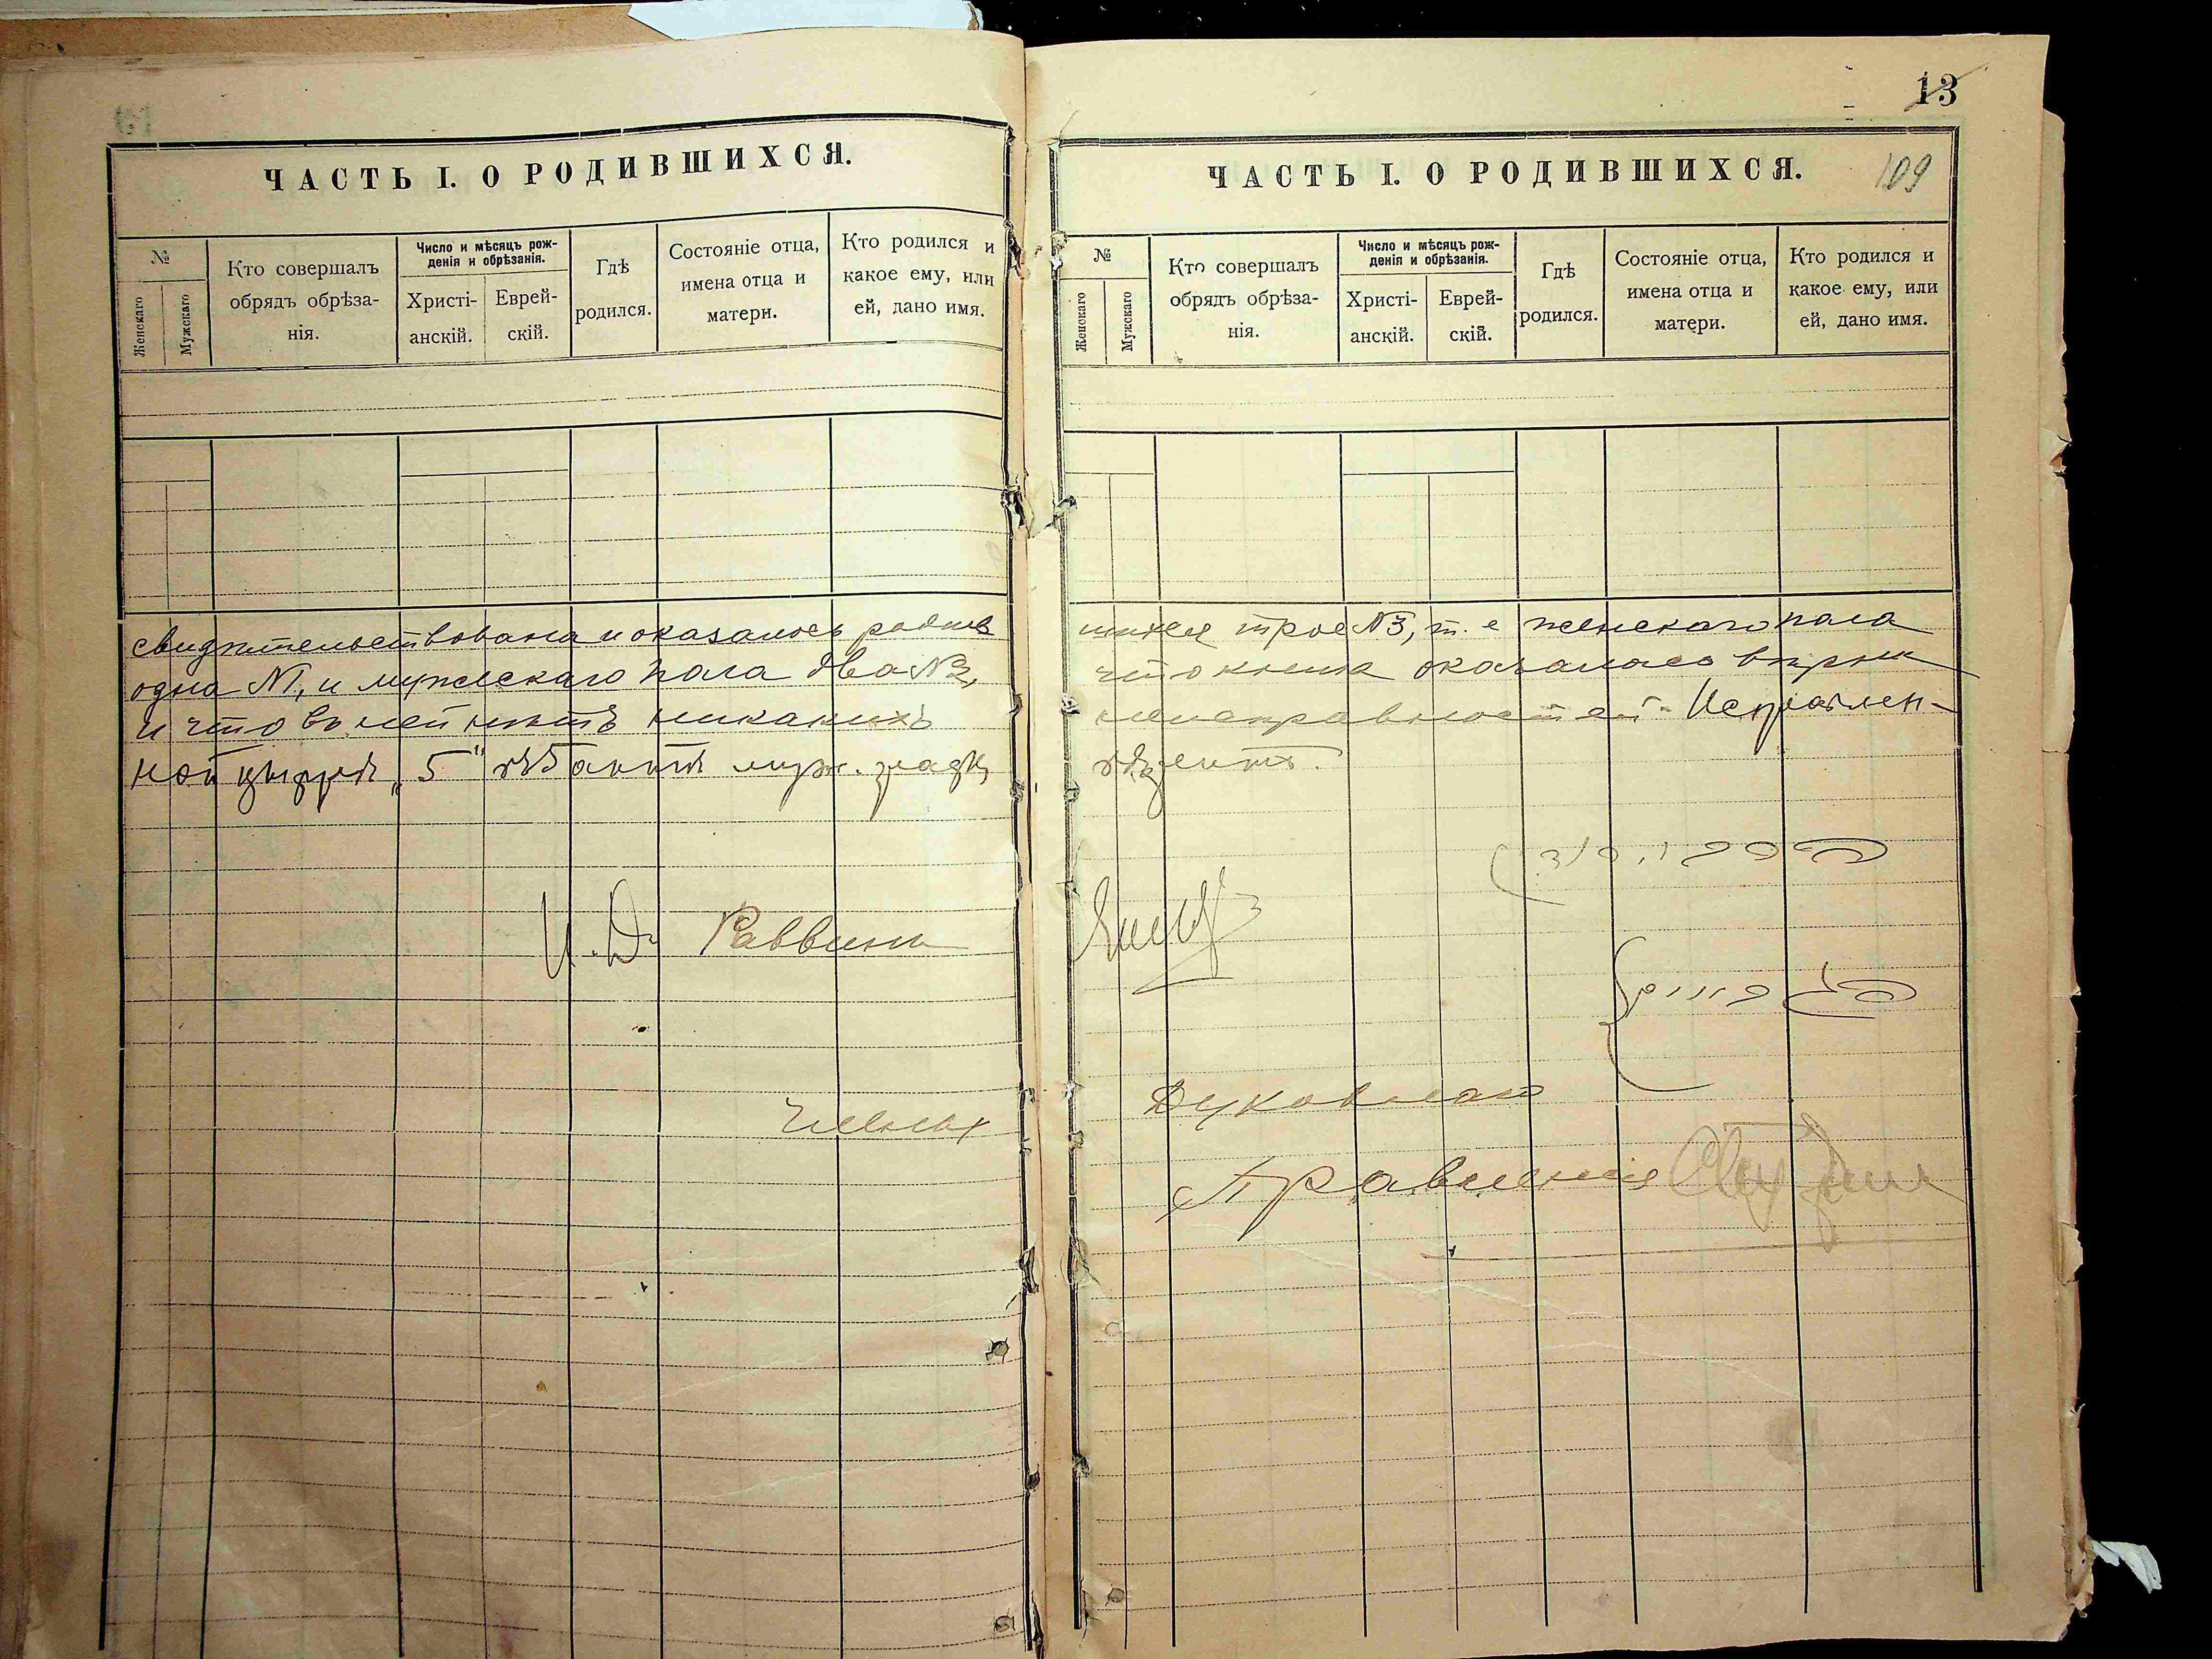 13
ЧАСТЬ I. О РОДИВШИХСЯ.
№
Женскаго
Мужскаго
Кто совершалъ
обрядъ обрѣза-
нія.
Число и мѣсяцъ рож-
денія и обрѣзанія.
Христі-
анскій.
Еврей-
скій.
Гдѣ
родился.
Состояніе отца,
имена отца и
матери.
Кто родился и
какое ему, или
ей, дано имя.
свидѣтельствована и оказалось родив
одна №1, и мужескаго пола два №2,
и что въ ней нѣтъ никакихъ
ной цыфрѣ „5“ муж.
И. Д. Раввина
Членъ
ЧАСТЬ I. О РОДИВШИХСЯ.
109
№
Женскаго
Мужскаго
Кто совершалъ
обрядъ обрѣза-
нія.
Число и мѣсяцъ рож-
денія и обрѣзанія.
Христі-
анскій.
Еврей-
скій.
Гдѣ
родился.
Состояніе отца,
имена отца и
матери.
Кто родился и
какое ему, или
ей, дано имя.
шихся трое №3, т. е женскаго пола
что книга оказалась вѣрна
неисправностей. Исправлен-
Духовнаго
Правленія